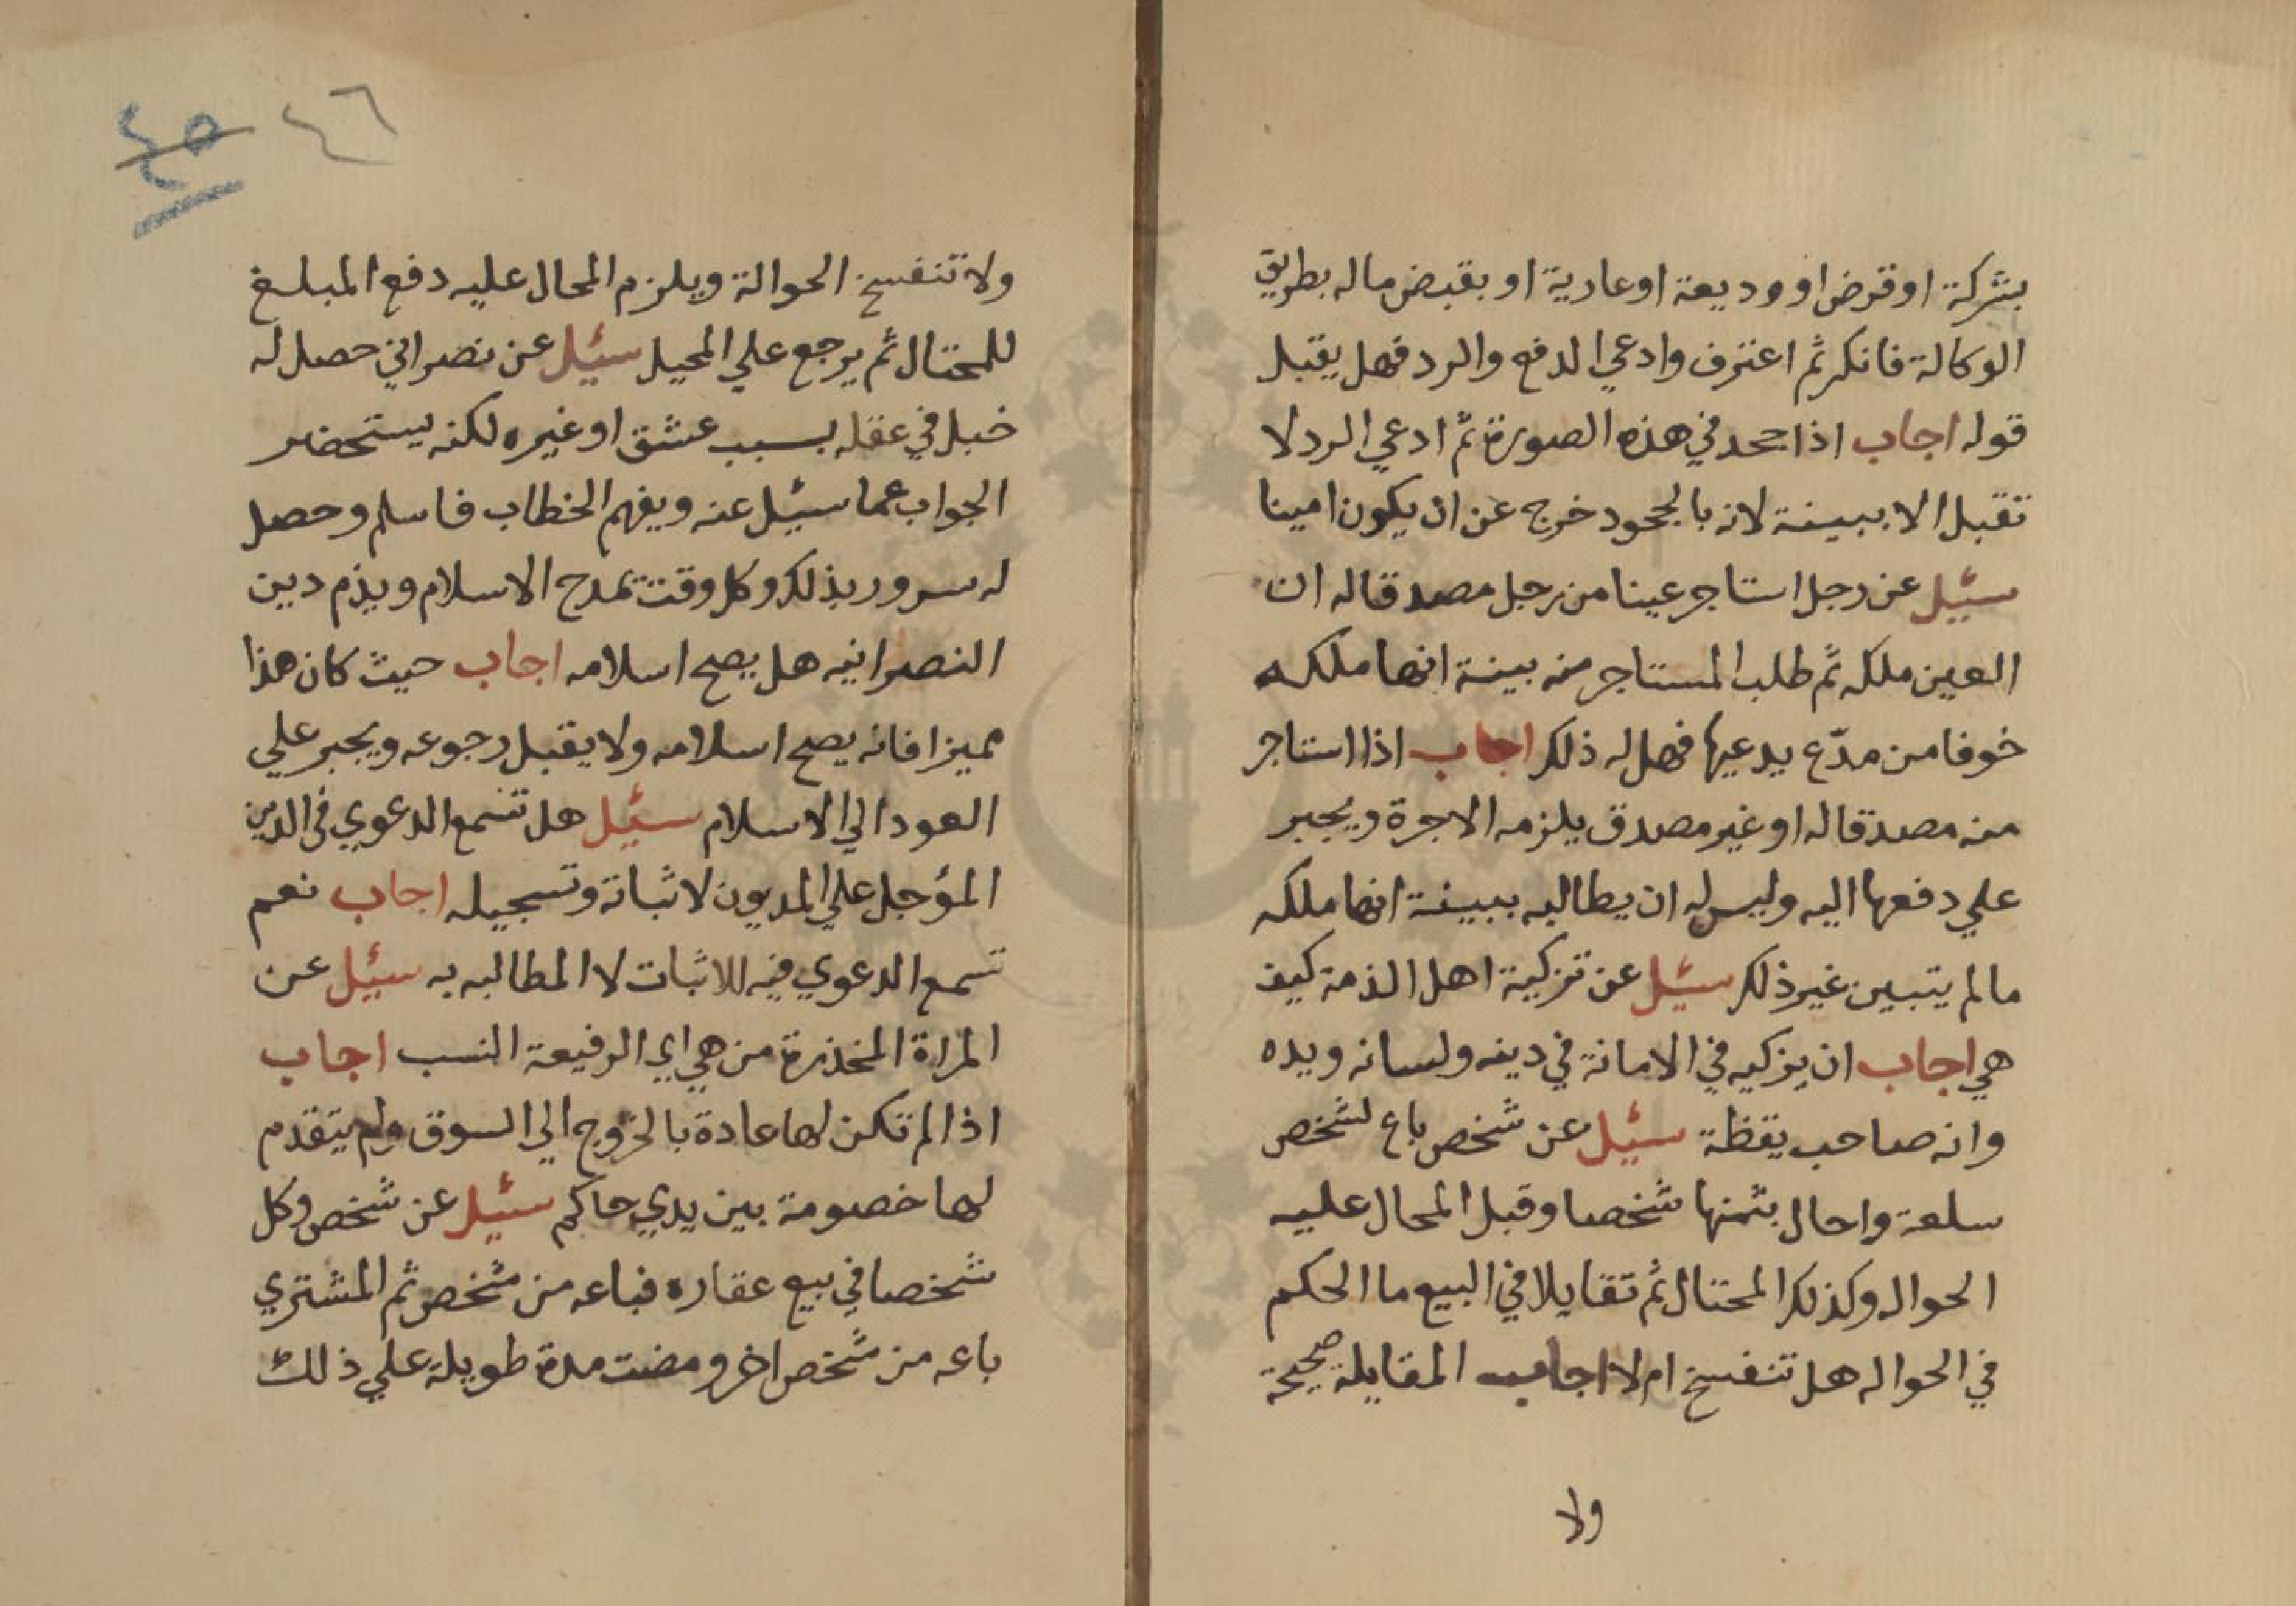 بشركة او قرض او وديعة او عارية او بقبض ماله بطريق
الوكالة فانكر ثم اعترف وادعي الدفع والرد فهل يقبل
قوله اجاب اذا جحد في هذه الصورة ثم ادعي الرد لا
تقبل الا ببينة لانه بالجحود خرج عن ان يكون امينا
سئيل عن رجل استاجر عينا من رجل مصدقا له ان
العين ملكه ثم طلب المستاجر منه بينة انها ملكه
خوفا من مدّع يدعيها فهل له ذلك اجاب اذا استاجر
منه مصدقا له او غير مصدق يلزمه الاجرة ويجبر
علي دفعها اليه وليس له ان يطالبه ببينة انها ملكه
مالم يتبين غير ذلك سئيل عن تزكية اهل الذمة كيف
هي اجاب ان يزكيه في الامانة في دينه ولسانه ويده
وانه صاحب يقظة سئيل عن شخص باع لشخص
سلعة واحال بثمنها شخصا وقبل المحال عليه
الحواله وكذلك المحتال ثم تقايلا في البيع ما الحكم
في الحواله هل تنفسخ ام لا اجاب المقايلة صحيحة
ولا
٤٦
٤٥
ولا تنفسخ الحوالة ويلزم المحال عليه دفع المبلغ
للمحتال ثم يرجع علي المحيل سئيل عن نصراني حصل له
خبل في عقله بسبب عشق او غيره لكنه يستحضر
الجواب عما سئيل عنه ويفهم الخطاب فاسلم وحصل
له سرور بذلك وكل وقت يمدح الاسلام ويذم دين
النصرانيه هل يصح اسلامه اجاب حيث كان هذا
مميزا فانه يصح اسلامه ولا يقبل رجوعه ويجبر علي
العود الي الاسلام سئيل هل تسمع الدعوي في الدين
المؤجل علي المديون لاثباته وتسجيله اجاب نعم
تسمع الدعوي فيه للاثبات لا المطالبه به سئيل عن
المراة المخذرة من هي اي الرفيعة النسب اجاب
اذا لم تكن لها عادة بالخروج الي السوق ولم يتقدم
لها خصومة بين يدي حاكم سئيل عن شخص وكل
شخصا في بيع عقاره فباعه من شخص ثم المشتري
باعه من شخص اخر ومضت مدة طويلة علي ذلك